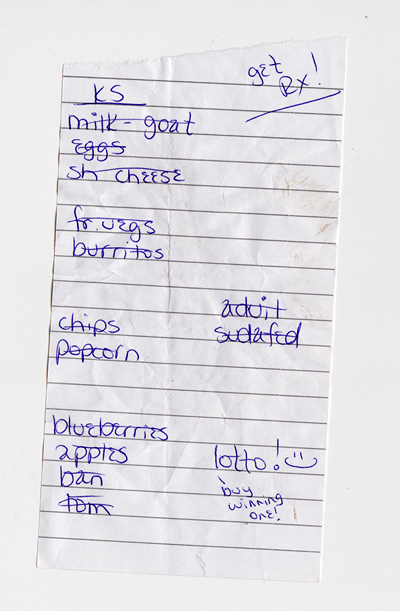 get
Rx!
KS
milk - goat
eggs
sh cheese
fr. vegs
burritos
advil
chips
sudafed
popcorn
blueberries
apples
lotto! :)
ban
buy
winning
one!
tom